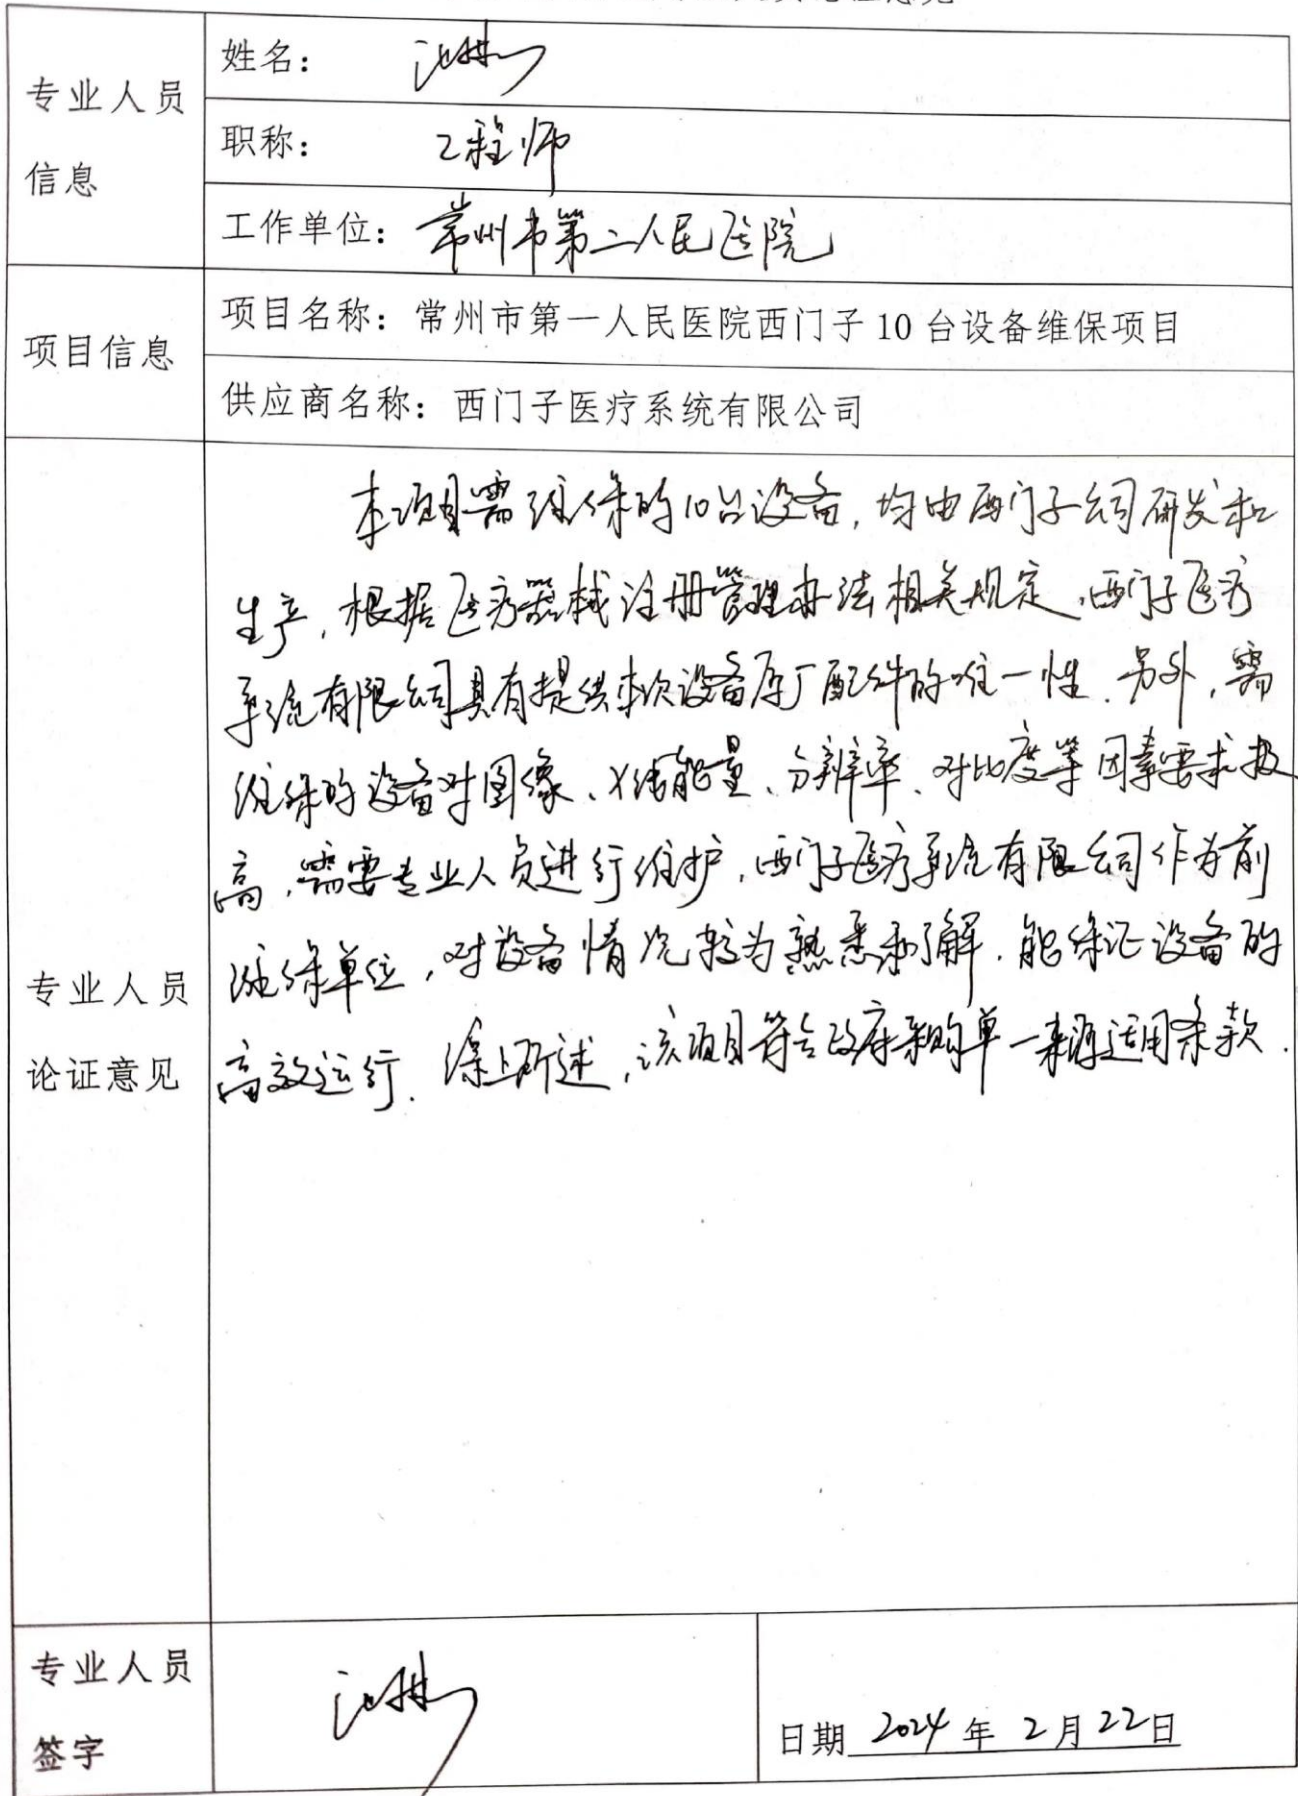 专业人员
信息
姓名：
职称： 工程师
工作单位：常州市第二人民医院
项目信息
项目名称：常州市第一人民医院西门子 10 台设备维保项目
供应商名称：西门子医疗系统有限公司
专业人员
论证意见
本项目需维保的10台设备，均由西门子公司研发和
生产，根据医疗器械注册管理办法相关规定，西门子医疗
系统有限公司具有提供本次设备原厂配件的唯一性．另外，需
维保的设备对图像、X线能量、分辨率、对比度等因素要求极
高，需要专业人员进行维护，西门子医疗系统有限公司作为前
维保单位，对设备情况较为熟悉和了解．能保证设备的
高效运行．综上所述，该项目符合政府采购单一来源适用条款．
专业人员
签字
日期 2024 年 2 月 22 日